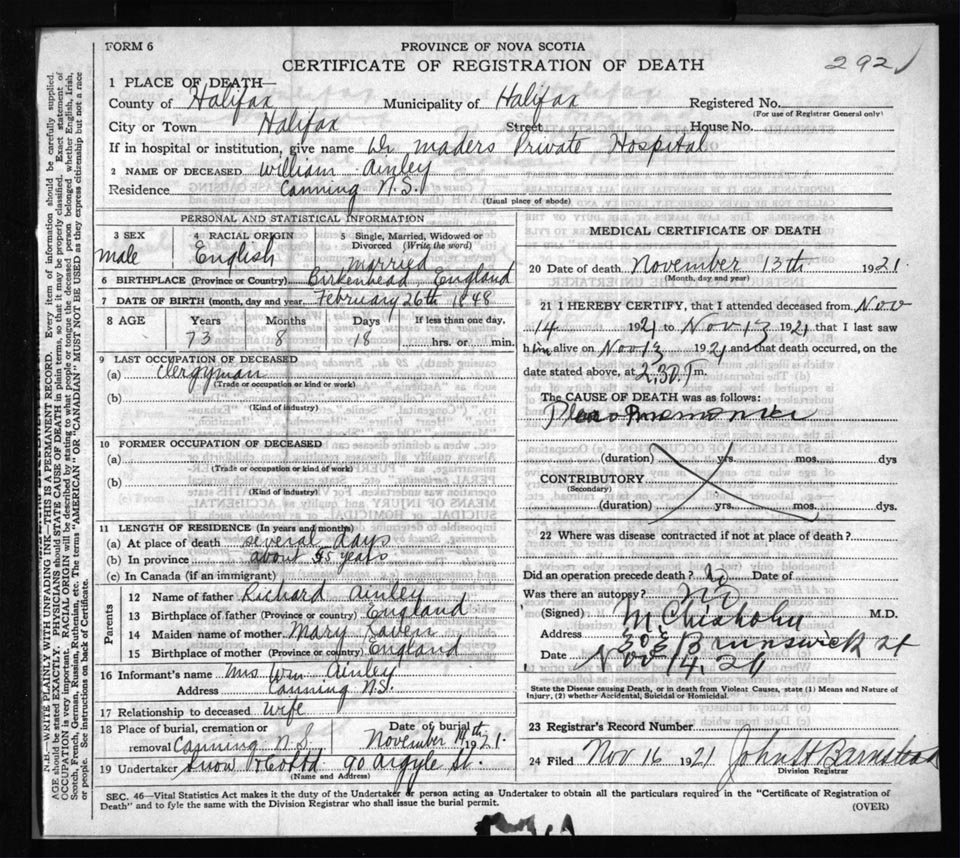 FORM 6
PROVINCE OF NOVA SCOTIA
CERTIFICATE OF REGISTRATION OF DEATH
292
1 PLACE OF DEATH—
County of Halifax Municipality of Halifax Registered No.
(For use of Registrar General only)
City or Town Halifax Street House No.
If in hospital or institution, give name Dr maders Private Hospital
2 NAME OF DECEASED William Ainley
Residence Canning N.S.
(Usual place of abode)
PERSONAL AND STATISTICAL INFORMATION
3 SEX male
4 RACIAL ORIGIN English
5 Single, Married, Widowed or Divorced (Write the word) married
6 BIRTHPLACE (Province or Country) Birkenhead, England
7 DATE OF BIRTH (month, day and year) February 26th 1848
8 AGE Years Months Days If less than one day,
73 8 18 hrs. or min.
9 LAST OCCUPATION OF DECEASED
(a) Clergyman
(Trade or occupation or kind or work)
(b)
(Kind of industry)
10 FORMER OCCUPATION OF DECEASED
(a)
(Trade or occupation or kind of work)
(b)
(Kind of industry)
11 LENGTH OF RESIDENCE (In years and months)
(a) At place of death several days
(b) In province about years
(c) In Canada (if an immigrant)
Parents
12 Name of father Richard Ainley
13 Birthplace of father (Province or country) England
14 Maiden name of mother Mary
15 Birthplace of mother (Province or country) England
16 Informant's name Mrs Wm Ainley
Address Canning N.S.
17 Relationship to deceased Wife
18 Place of burial, cremation or removal Canning N.S. Date of burial November 1921.
19 Undertaker Snow & Co Ltd 90 Argyle St.
(Name and Address)
MEDICAL CERTIFICATE OF DEATH
20 Date of death November 13th 1921.
(Month, day and year)
21 I HEREBY CERTIFY, that I attended deceased from Nov
14 1921 to Nov 13 1921 that I last saw
him alive on Nov 13 1921 and that death occurred, on the
date stated above, at 2.30 m.
The CAUSE OF DEATH was as follows:
(duration) yrs. mos. dys
CONTRIBUTORY
(Secondary)
(duration) yrs. mos. dys.
22 Where was disease contracted if not at place of death?
Did an operation precede death? No Date of
Was there an autopsy? No
(Signed) M Chisholm M.D.
Address Brunswick st
Date Nov 14, 21
State the Disease causing Death, or in death from Violent Causes, state (1) Means and Nature of
Injury, (2) whether Accidental, Suicidal or Homicidal.
23 Registrar's Record Number
24 Filed Nov 16 1921 John H Barnstead
Division Registrar
SEC. 46—Vital Statistics Act makes it the duty of the Undertaker or person acting as Undertaker to obtain all the particulars required in the "Certificate of Registration of
Death" and to fyle the same with the Division Registrar who shall issue the burial permit.
(OVER)
N.B.—WRITE PLAINLY WITH UNFADING INK—THIS IS A PERMANENT RECORD. Every item of information should be carefully supplied.
AGE should be stated EXACTLY. PHYSICIANS should STATE CAUSE OF DEATH in plain terms, so that it may be properly classified. Exact statement of
OCCUPATION is very important. RACIAL ORIGIN will be described by stating to what people or tongue the deceased person belonged whether English, Irish,
Scotch, French, German, Russian, Ruthenian, etc. The terms "AMERICAN" OR "CANADIAN" MUST NOT BE USED as they express citizenship but not a race
or people. See instructions on back of Certificate.